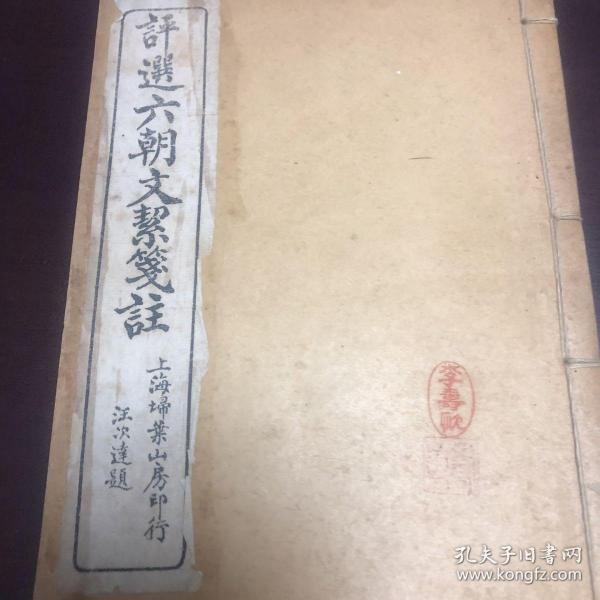 評選六朝文絜箋註
上海埽葉山房印行
汪次達題
孔夫子旧书网
www.kongfz.com